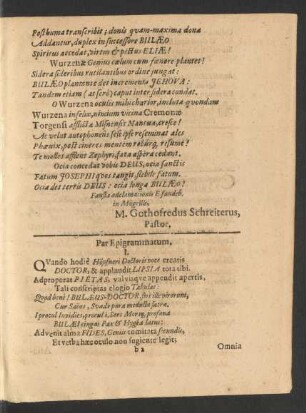 Posthuma transcribit; donis quam-maxima dona
Addantur, duplex in successore BULÆO
Spiritus accedat, virtus & pectus ELIÆ!
Wurzenæ Genius cælum cum fœnore plantet!
Sidera sideribus rutilantibus ordine jungat:
BULÆO plantente det incrementa JEHOVA:
Tandem etiam (at serò) caput inter sidera condat.
O Wurzena oculis mihi charior, incluta quondam
Wurzena infelix, nimium vicina Cremonæ
Torgensi afflicta Misnensis Mantua, cresce!
Ac velut autophoneus sese ipse reseminat ales
Phœnix, post cineres mentem resurg, resume!
Te molles afflent Zephyri, fata aspera cedant.
Ocia concedat vobis DEUS, ocia sanctis
Fatum JOSEPHI quos tangit, flebile fatum.
Ocia det certis DEUS: ocia longa BULÆO!
Fausta acclamationis E. fundeb.
in Mügellis,
M. Gothofredus Schreiterus,
Pastor,
Par Epigrammatum,
I.
QVando hodiè Höpfneri Doctoris voce creatis
DOCTOR, & applaudit LIPSIA tota tibi.
Adproperat PIETAS, valvisque appendit apertis,
Tali conscriptas elogio Tabulas:
Quod beet! BULÆUS-DOCTOR sui
Cui Salus, Suada pura medulla
I procul Invidies, procul i, Sors Mors, profana
BULÆI cingat Pax & Hygæa latus:
Advenit alma FIDES, Geniis comitata secundis,
Et verba hæc oculo non fugiente legit;
b 2
Omnia